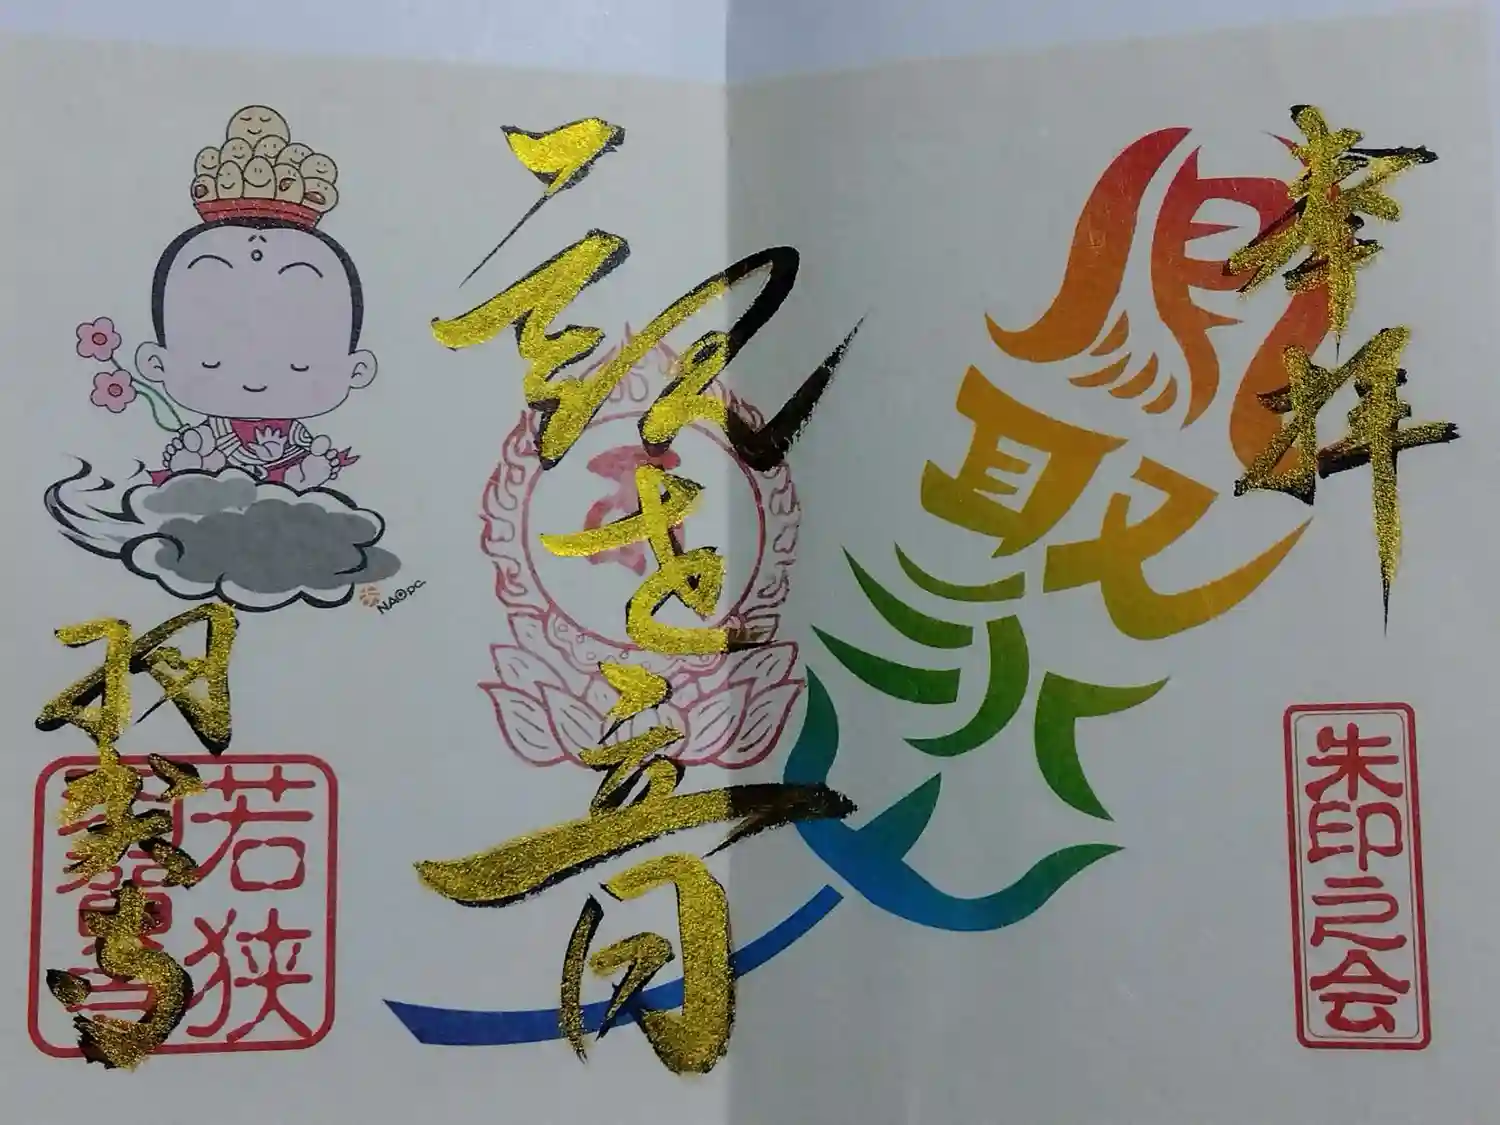 奉拝
朱印之会
観世音
羽賀寺
若狭
羽賀寺
NAOpc